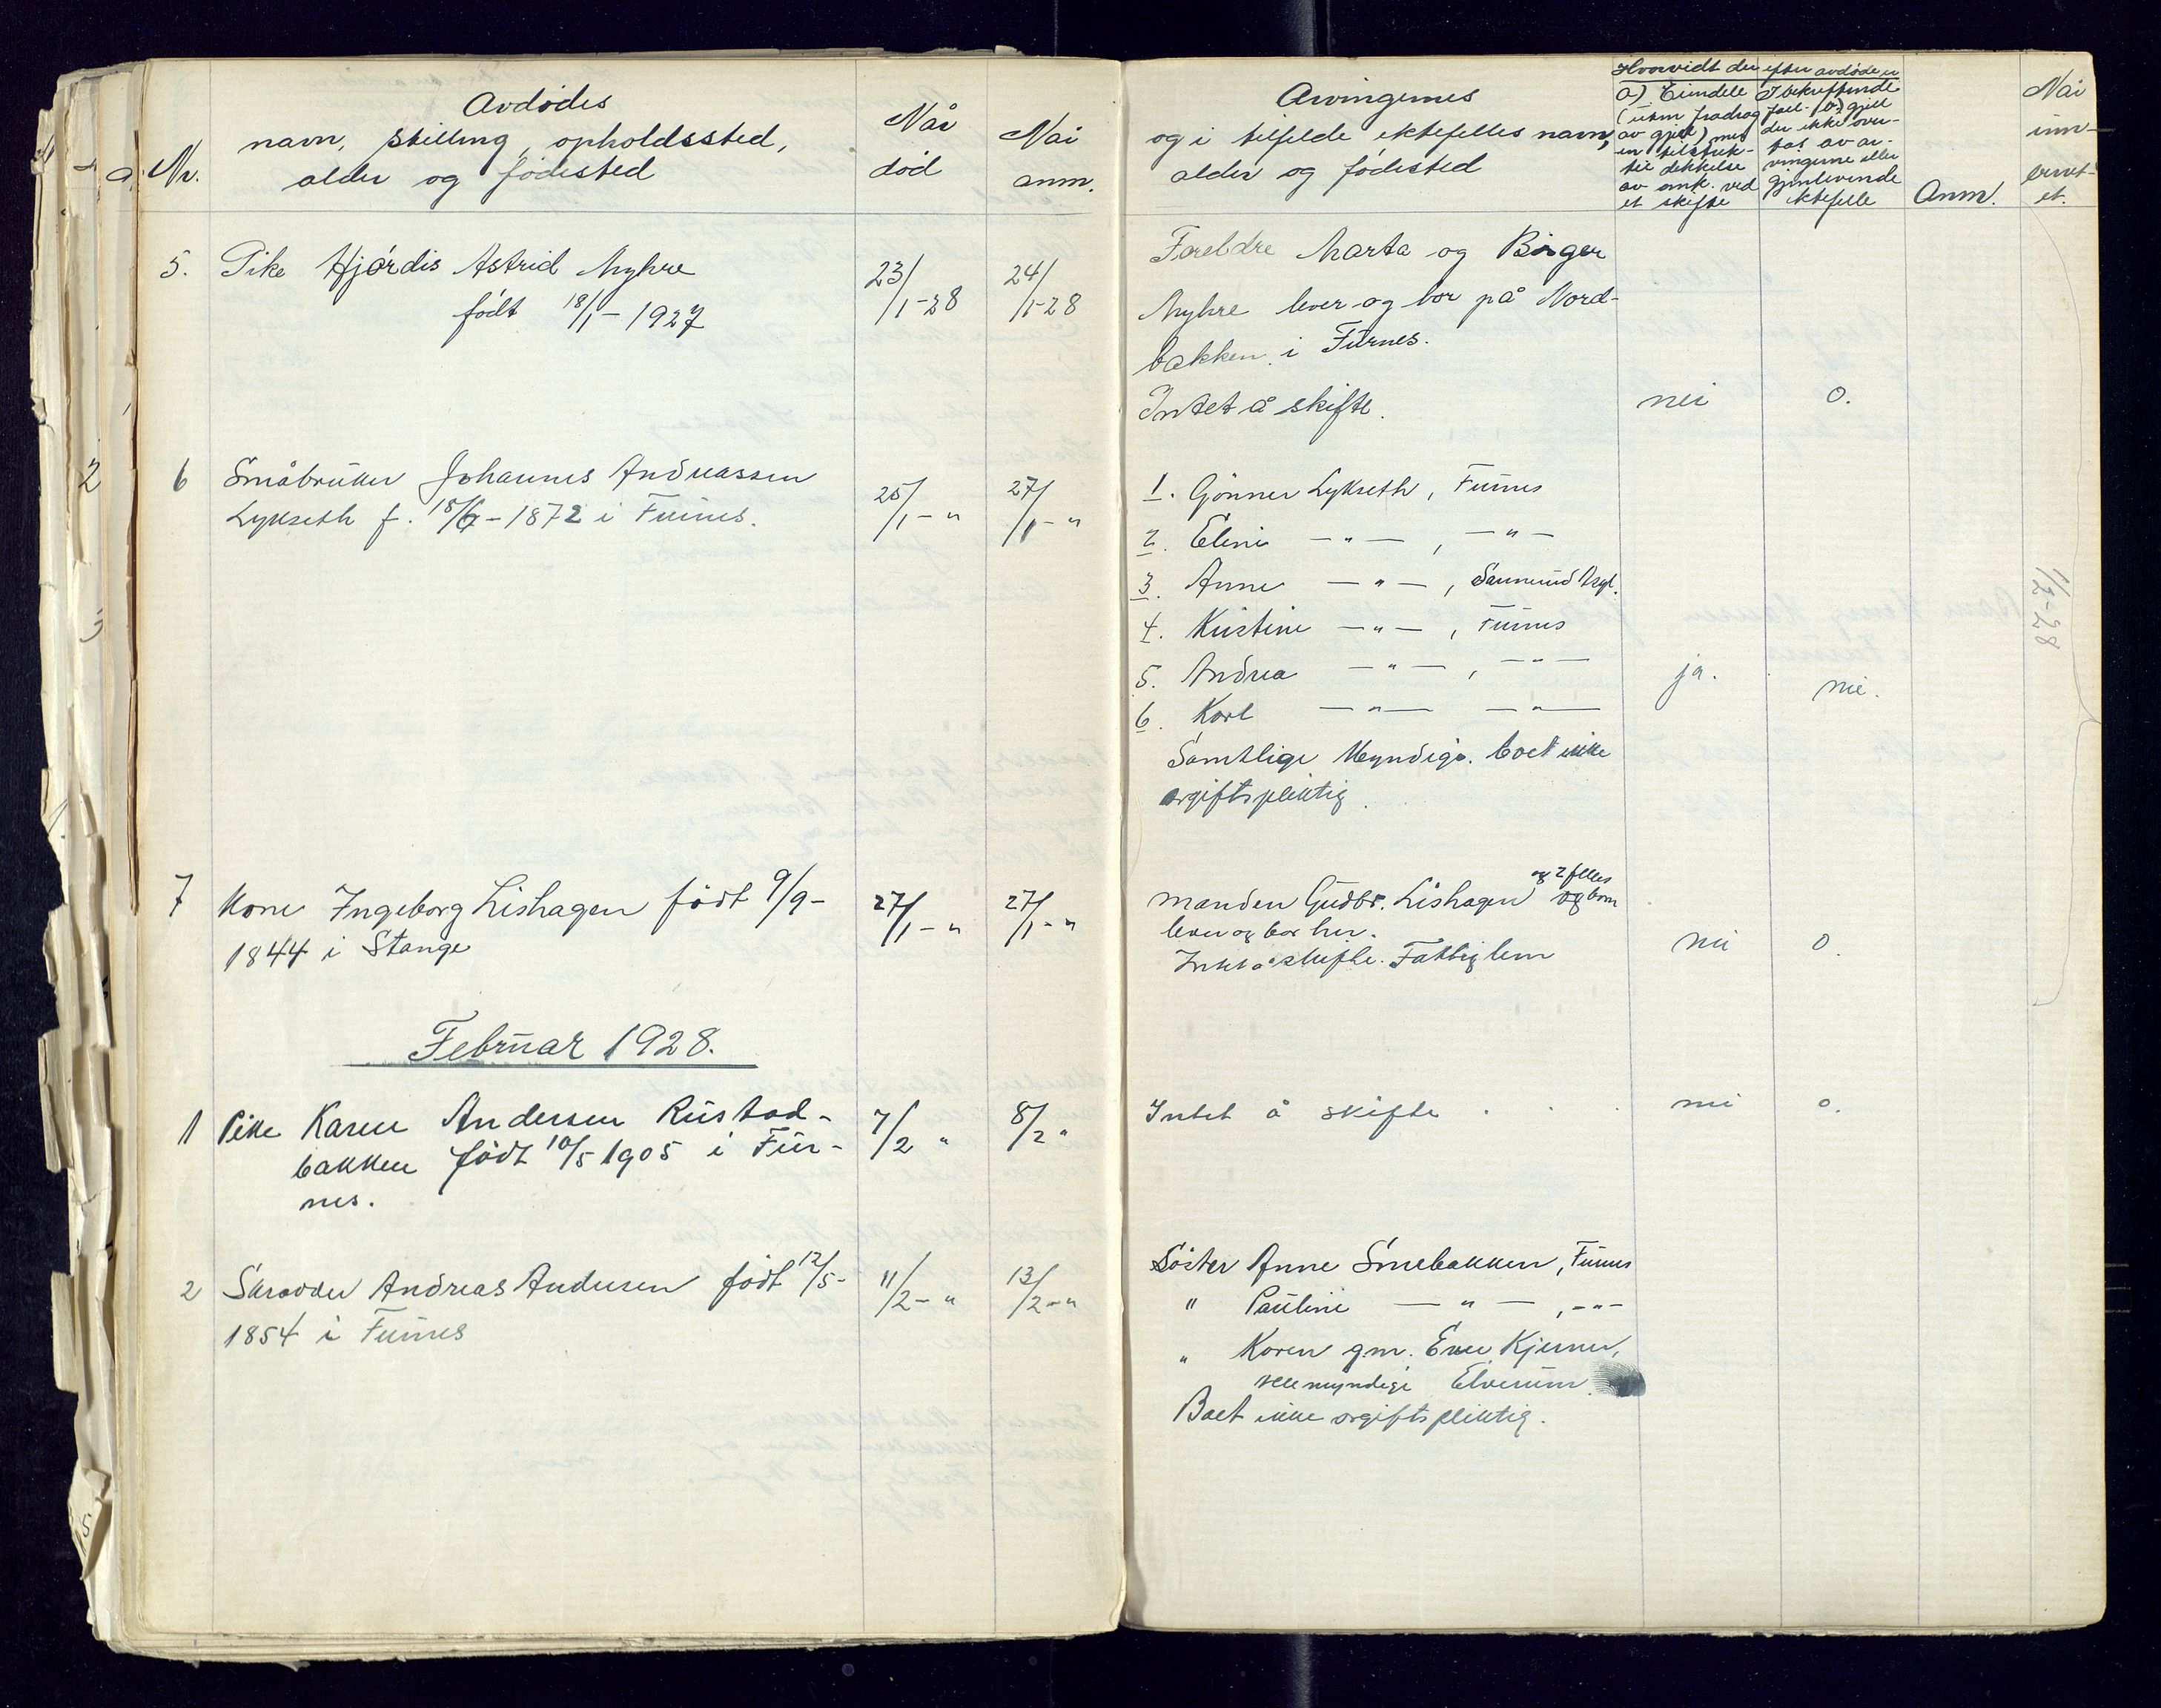 Avdødes
navn, stilling, opholdssted,
alder og fødested
Nr.
Når
død
Når
anm.
5. Pike Hjørdis Astrid Myhre
født 18/1 - 1927
23/1-28
24/1-28
6 Småbruker Johannes Andreassen
Lykseth f. 18/6 - 1872 i Furnes.
25/1 - "
27/1 - "
7 Kone Ingeborg Lishagen født 9/9 -
1844 i Stange
27/1 - "
27/1 - "
Februar 1928.
1 Pike Karen Andersen Rustad-
bakken født 10/5 1905 i Fur-
nes.
7/2 "
8/2 "
2 Skrædder Andreas Andersen født 12/5 -
1854 i Furnes
11/2 - "
13/2 - "
Arvingernes
og i tilfelde ektefelles navn,
alder og fødested
Hvorvidt der efter avdøde er
a) Eiendele
(uten fradrag
av gjeld) med
en tilstrek-
lig dekkelse
av omk. ved
et skifte
I bekreftende
fall. b) gjeld
der ikke over-
tas av ar-
vingerne eller
gjenlevende
ektefelle
Anm.
Når
inn-
beret-
et.
Foreldre Marta og Birger
Myhre lever og bor på Nord-
bakken i Furnes.
Intet å skifte. nei 0.
1. Gunner Lykseth, Furnes
2. Eline — " — , — " —
3. Anne — " — , Sannerud Asyl.
4. Kristine — " — , Furnes
5. Andrea — " — , — " —
6. Karl — " — — " —
ja. nei.
Samtlige Myndige. Boet ikke
avgiftspliktig.
1/2-28
og 2 felles
manden Gudbr. Lishagen og barn
lever og bor her.
Intet å skifte. Fattiglem
nei 0.
Intet å skifte . . . nei 0.
Søster Anne Smebakken, Furnes
" Pauline — " — , - " -
" Karen gm. Even Kjerner,
alle myndige Elverum.
Boet ikke avgiftspliktig.